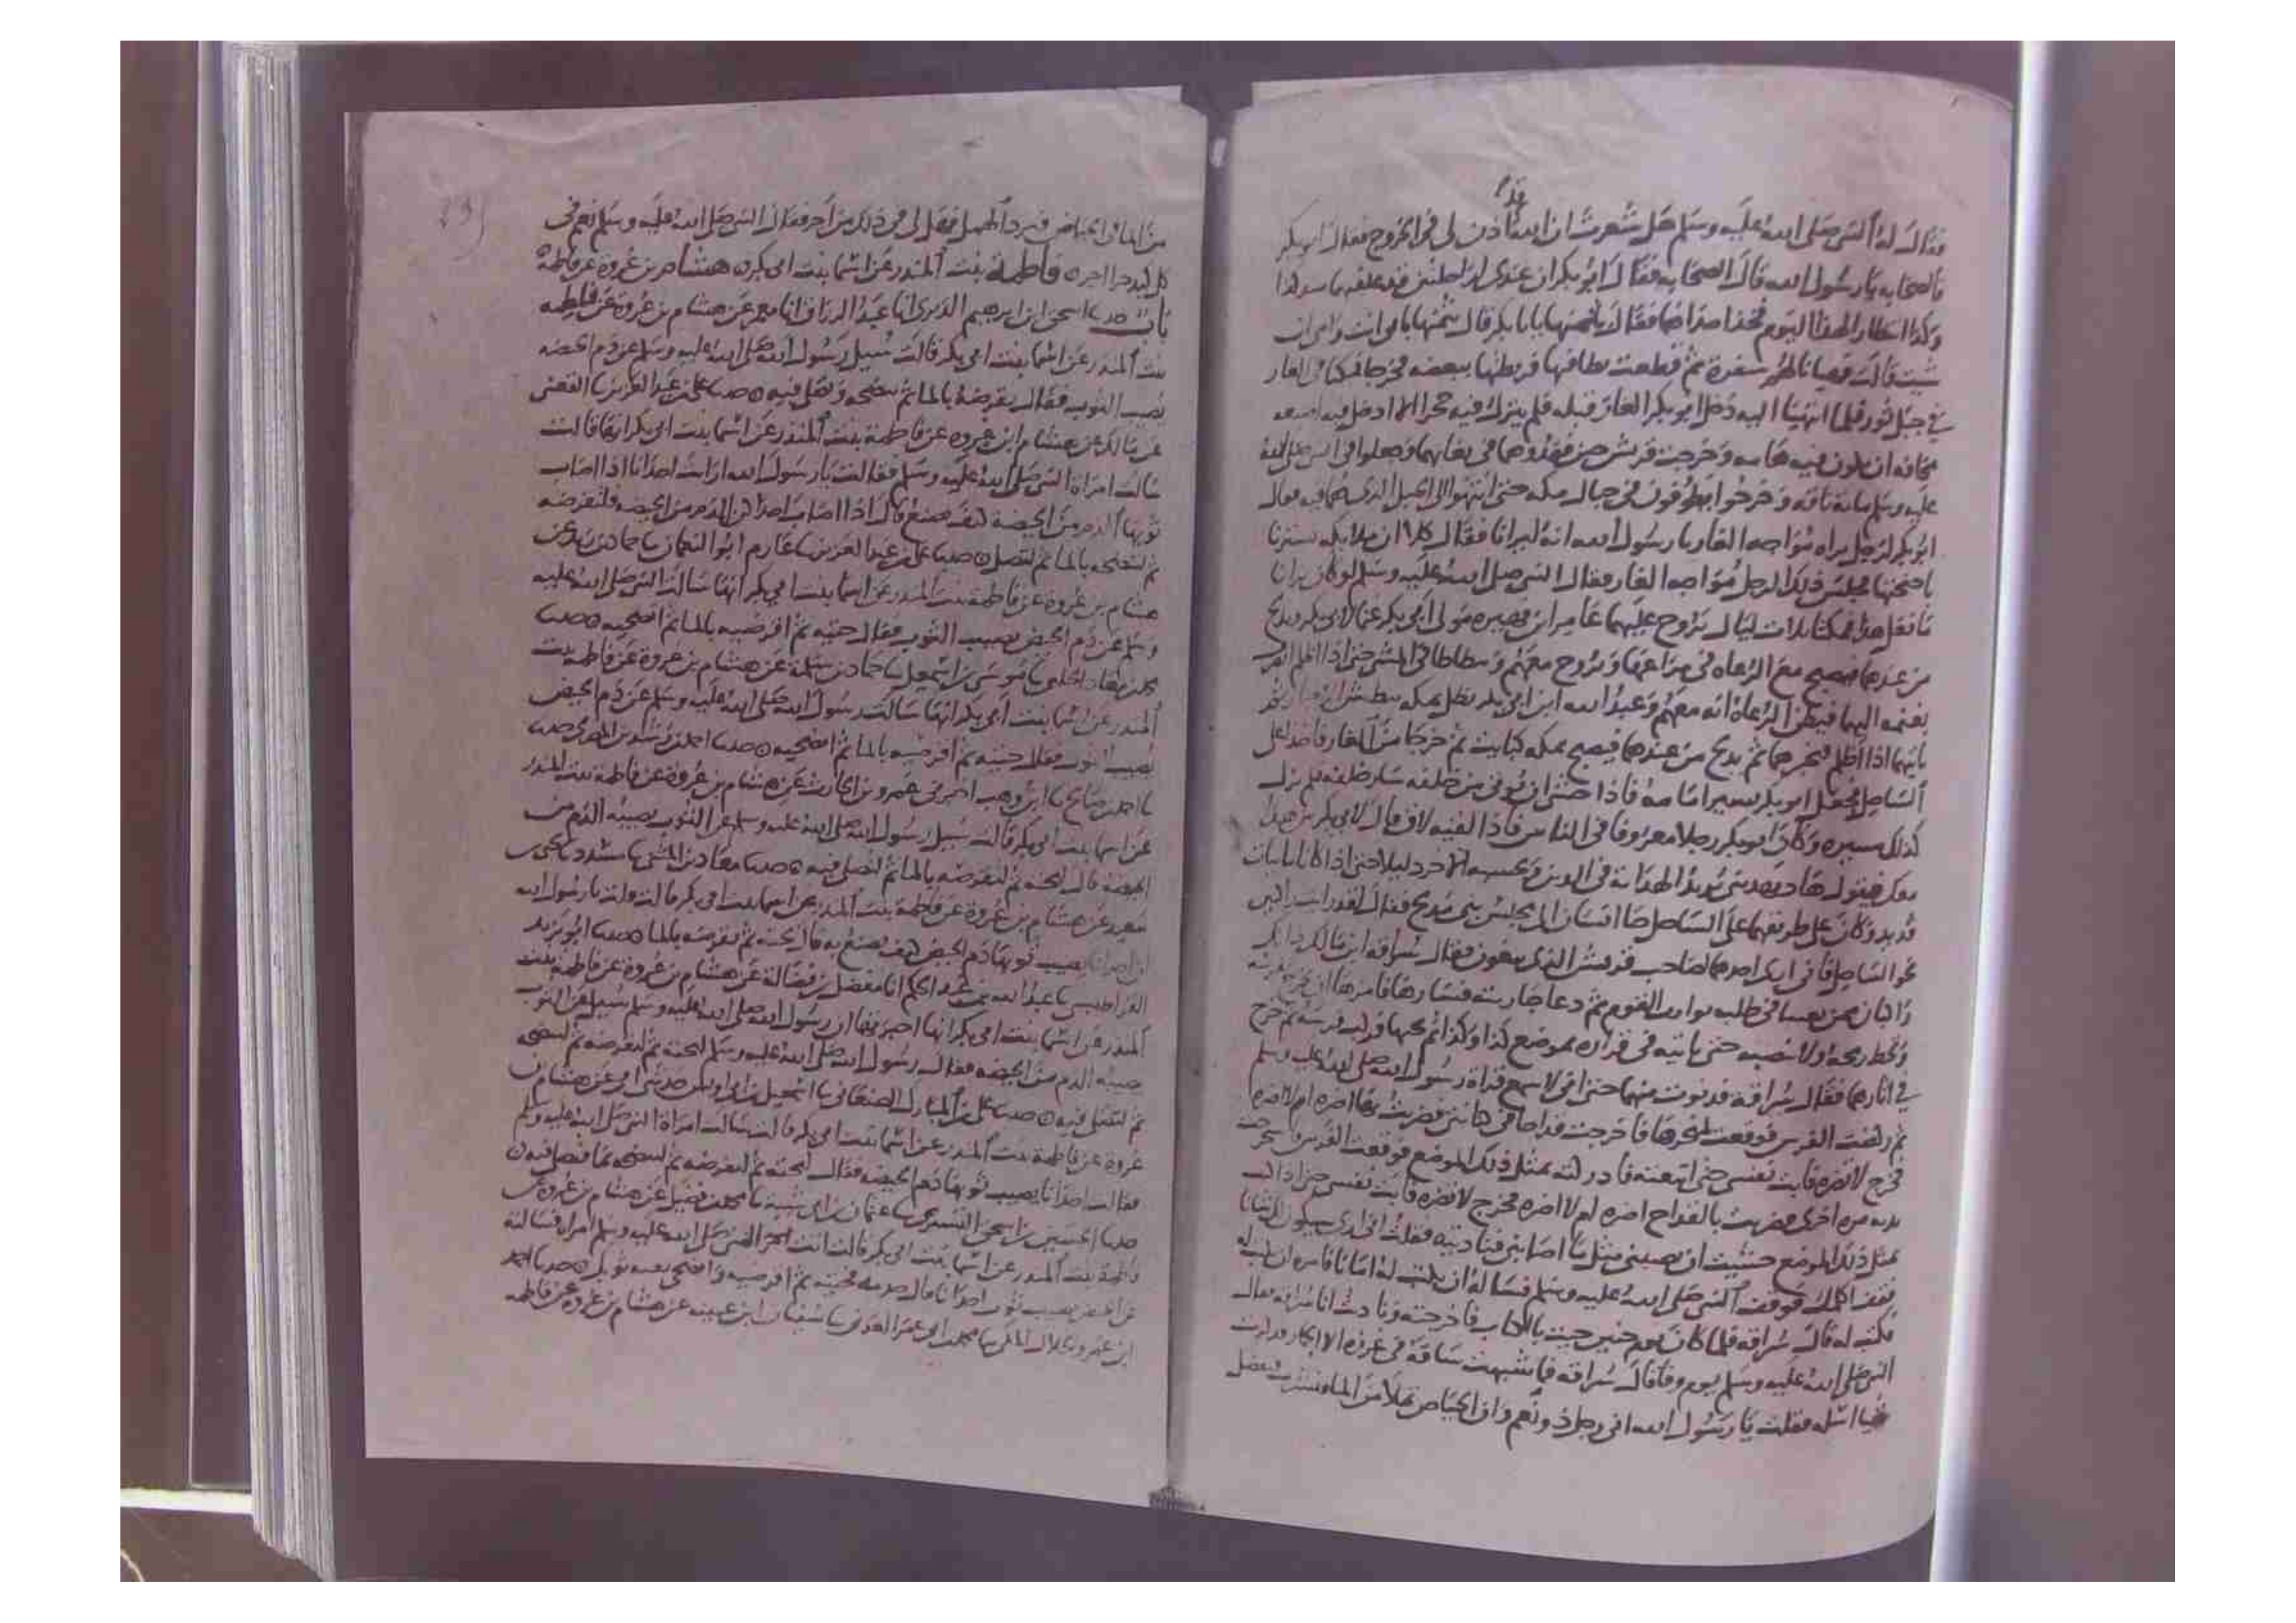 فقال له النبي صلى الله عليه وسلم هل شعرت ان الله قد اذن لي في الخروج فقال ابو بكر
فالصحابه يا رسول الله قال الصحابه فقال ابو بكر ان عندي لراحلتين قد علفتهما
لهذا اليوم فخذ احداهما فقال بثمنها يابا بكر قال بثمنها بابي انت وامي ان
شيت قالت فهيانا لهم سفره ثم قطعت نطاقها فربطتها ببعضه فخرجا فمكثا في الغار
في جبل ثور فلما انتهيا اليه دخل ابو بكر الغار قبله فلم يترك فيه جحرا الا ادخل فيه اصبعه
مخافه ان يكون فيه هامه وخرجت قريش حين فقدوهما في بغايهما وجعلوا في النبي صلى الله
عليه وسلم مايه ناقه وخرجوا يطوفون في جبال مكه حتى انتهوا الى الجبل الذي هما فيه فقال
ابو بكر لرجل يراه مواجه الغار يا رسول الله انه ليرانا فقال كلا ان ملايكه تسترنا
باجنحتها فجلس ذلك الرجل مواجه الغار فقال النبي صلى الله عليه وسلم لو كان يرانا
ما فعل هذا فمكثا ثلاث ليال يروح عليهما عامر ابن فهيره مولى ابي بكر غنما لابي بكر ويدلج
من عندهما فيصبح مع الرعاه في مراعيها ويروح معهم ويتباطا في المشي حتى اذا اظلم الليل
بغنمه اليهما فيظن الرعاه انه معهم وعبد الله ابن ابي بكر يظل بمكه
ياتيهما اذا اظلم فيخبرهما ثم يدلج من عندهما فيصبح بمكه كبايت ثم خرجا من الغار فاخذا على
الساحل فجعل ابو بكر يسير امامه فاذا خشي ان يوتى من خلفه سار خلفه فلم يزل
كذلك مسيره وكان ابو بكر رجلا معروفا في الناس فاذا لقيه لاق قال لابي بكر من هذا
معك فيقول هاد يهديني يريد الهدايه في الدين ويحسبه الاخر دليلا حتى اذا كانا بابيات
قديد وكان على طريقهما على الساحل جا انسان الى مجلس بني مدلج فقال لقد رايت راكبين
نحو الساحل فاني احدهما لصاحب قريش الذي يبغون فقال سراقه ابن مالك
راكبان ممن بعثنا في طلب القوم ثم دعا جاريته فسارها فامرها ان تخرج
وتحط رمحه ولا تنصبه حتى ياتيه في قراره بموضع كذا وكذا ثم يجيها فركب فرسه ثم خرج
في اثارهما فقال سراقه فدنوت منهما حتى اني لاسمع قراه رسول الله صلى الله عليه وسلم
ثم ركضت الفرس فوقعت بمنخرها فاخرجت قداحا من كنانتي فضربت بها اضره ام لا اضره
فخرج لا تضره فابت نفسي حتى اتبعته فادركته بمثل ذلك الموضع فوقعت الفرس
مره اخرى فضربت بالقداح اضره ام لا اضره فخرج لا تضره فابت نفسي حتى اذا كنت
بمثل ذلك الموضع خشيت ان يصيبني مثل ما اصابني فناديته فقلت اني ارى سيكون لك شانا
فقف اكلمك فوقف النبي صلى الله عليه وسلم فساله ان يكتب له امانا فامره ان يكتب له
فكتب له قال سراقه فلما كان يوم حنين جيت بالكتاب فاخرجته وناديت انا سراقه فقال
النبي صلى الله عليه وسلم يوم وفا قال سراقه فما شبهت ساقه في غرزه الا الجمار
شيا اسله فقلت يا رسول الله اني رجل ذو نعم وان الحياض تملا من الما فنشرب فيفضل
من الما في الحياض فيرد الهمل فهل لي في ذلك من اجر فقال النبي صلى الله عليه وسلم نعم في
كل كبد حرا اجر ه فاطمة بنت المنذر عن اسما بنت ابي بكر ه هشام بن عروة عن فاطمة
باب حدثنا اسحق ابن ابرهيم الدبري انا عبد الرزاق انا معمر عن هشام بن عروة عن فاطمه
بنت المنذر عن اسما بنت ابي بكر قالت سيل رسول الله صلى الله عليه وسلم عن دم الحيضه
يصيب الثوب فقال تقرصه بالما ثم تنضحه وتصلي فيه ه حدثنا علي بن عبد العزيز نا القعنبي
عن مالك عن هشام ابن عروه عن فاطمة بنت المنذر عن اسما بنت ابي بكر انها قالت
سالت امراة النبي صلى الله عليه وسلم فقالت يا رسول الله ارايت احدانا اذا اصاب
ثوبها الدم من الحيضة كيف تصنع قال اذا اصاب احداكن الدم من الحيضه فلتقرصه
ثم لتنضحه بالما ثم لتصلي ه حدثنا علي بن عبد العزيز نا عارم ابو النعمان نا حماد بن زيد عن
هشام بن عروة عن فاطمة بنت المنذر عن اسما بنت ابي بكر انها سالت النبي صلى الله عليه
وسلم عن دم الحيض يصيب الثوب فقال حتيه ثم اقرصيه بالما ثم انضحيه ه حدثنا
محمد بن معاذ الحلبي نا موسى بن اسمعيل نا حماد بن سلمة عن هشام بن عروة عن فاطمة بنت
المنذر عن اسما بنت ابي بكر انها سالت رسول الله صلى الله عليه وسلم عن دم الحيض
يصيب الثوب فقال حتيه ثم اقرصيه بالما ثم انضحيه ه حدثنا احمد بن رشدين المصري حدثنا
نا احمد بن صالح نا ابن وهب اخبرني عمرو بن الحارث عن هشام بن عروة عن فاطمة بنت المنذر
عن اسما بنت ابي بكر قالت سيل رسول الله صلى الله عليه وسلم عن الثوب يصيبه الدم من
الحيضة قال لتحته ثم لتقرصه بالما ثم لتصلي فيه ه حدثنا معاذ بن المثنى نا مسدد نا يحيى بن
سعيد عن هشام بن عروة عن فاطمة بنت المنذر عن اسما بنت ابي بكر قالت قلت يا رسول الله
احدانا يصيب ثوبها دم الحيض كيف تصنع به قال تحته ثم تقرصه بالما ه حدثنا ابو يزيد
القراطيسي نا عبد الله بن عبد الحكم انا مفضل بن فضالة عن هشام بن عروة عن فاطمة بنت
المنذر عن اسما بنت ابي بكر انها اخبرتها ان رسول الله صلى الله عليه وسلم سيل عن الثوب
يصيبه الدم من الحيضه فقال رسول الله صلى الله عليه وسلم لتحته ثم لتقرصه ثم لتنضحه
ثم لتصلي فيه ه حدثنا علي بن المبارك الصنعاني نا اسمعيل بن ابي اويس حدثني ابي عن هشام بن
عروة عن فاطمة بنت المنذر عن اسما بنت ابي بكر قالت سالت امراة النبي صلى الله عليه وسلم
فقالت احدانا يصيب ثوبها دم الحيضه فقال لتحته ثم لتقرصه ثم لتنضحه بما فتصلي فيه ه
حدثنا الحسين بن اسحق التستري نا عثمان بن ابي شيبه نا محمد بن فضيل عن هشام بن عروة عن
فاطمة بنت المنذر عن اسما بنت ابي بكر قالت اتت النبي صلى الله عليه وسلم امراه فسالته
عن الحيض يصيب ثوب احدانا فقال ثم اقرصيه وانضحي ه حدثنا احمد
ابن عمرو الخلال المكي نا محمد بن ابي عمر العدني نا سفيان ابن عيينه عن هشام بن عروة عن فاطمه